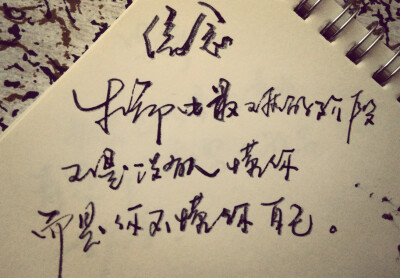 信念
生命中最难的阶段
不是没有人懂你
而是你不懂你自己。